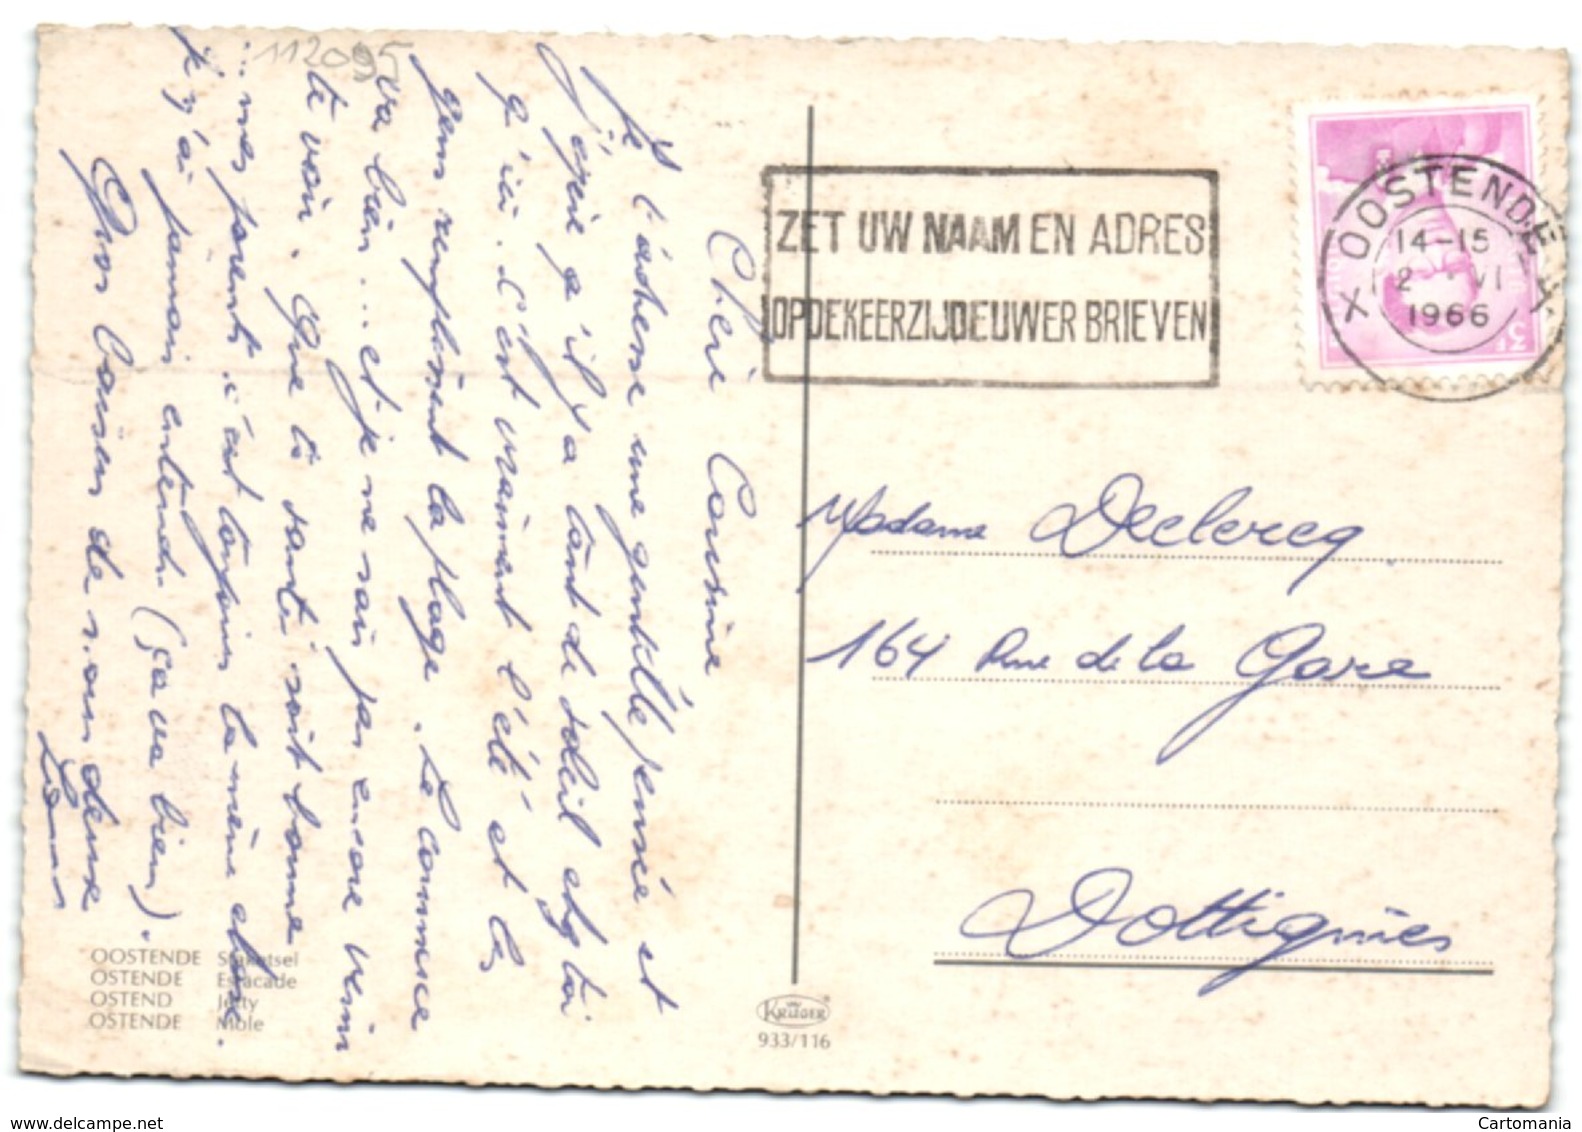 112095
Chère Cousine
Je t'adresse une gentille pensée et
j'espère q il y a tant de soleil chez toi
q ici. C'est vraiment l'été et les
gens remplissent la plage. Le commerce
va bien... et je ne sais pas encore venir
te voir. Que ta santé soit bonne
... mes parents c'est toujours la même chose.
je n'ai jamais entendu (ça va bien).
Gros baisers de nous deux
ZET UW NAAM EN ADRES
OP DE KEERZIJDE UWER BRIEVEN
X OOSTENDE X
14-15
2 VI
1966
3F
Madame Declercq
164 Rue de la Gare
Dottignies
OOSTENDE Staketsel
OSTENDE Estacade
OSTEND Jetty
OSTENDE Mole
KRÜGER
933/116
www.delcampe.net
Cartomania